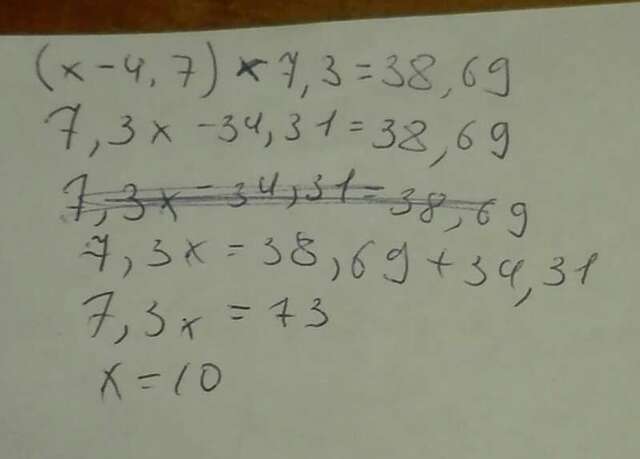 (x-4,7)×7,3=38,69
7,3x-34,31=38,69
7,3x-34,31=38,69
7,3x=38,69+34,31
7,3x=73
x=10